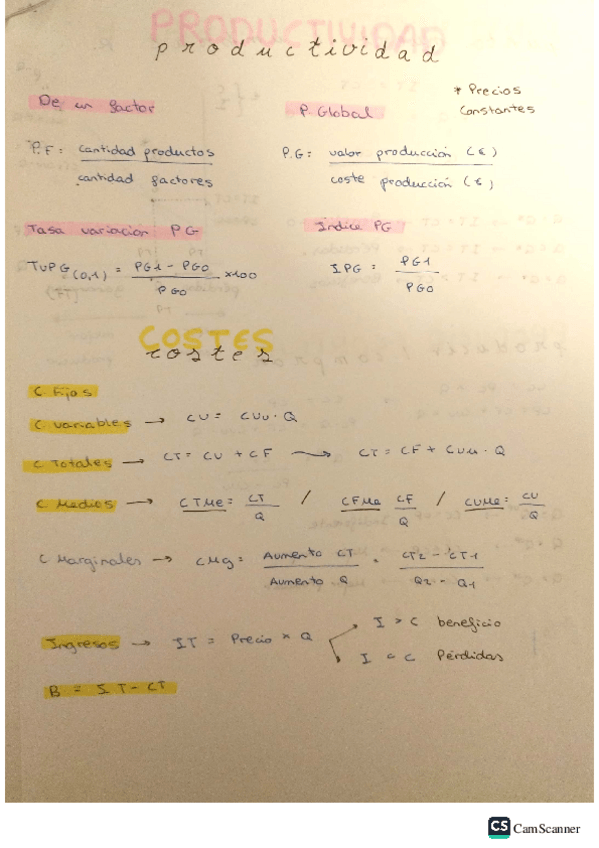 PRODUCTIVIDAD
productividad
De un factor
P. Global
* Precios Constantes
P.F: cantidad productos / cantidad factores
P.G: valor producción (€) / coste producción (€)
Tasa variación PG
Índice PG
TVPG (0,1) = PG1 - PG0 / PG0 x100
IPG = PG1 / PG0
COSTES
costes
C Fijos
C variables → CV = CVu · Q
C Totales → CT = CV + CF → CT = CF + CVu · Q
C Medios → CTMe = CT / Q / CFMe CF / Q / CVMe: CV / Q
C Marginales → CMg = Aumento CT / Aumento Q = CT2 - CT1 / Q2 - Q1
Ingresos → IT = Precio x Q
I > C beneficio
I < C Pérdidas
B = IT - CT
CS CamScanner